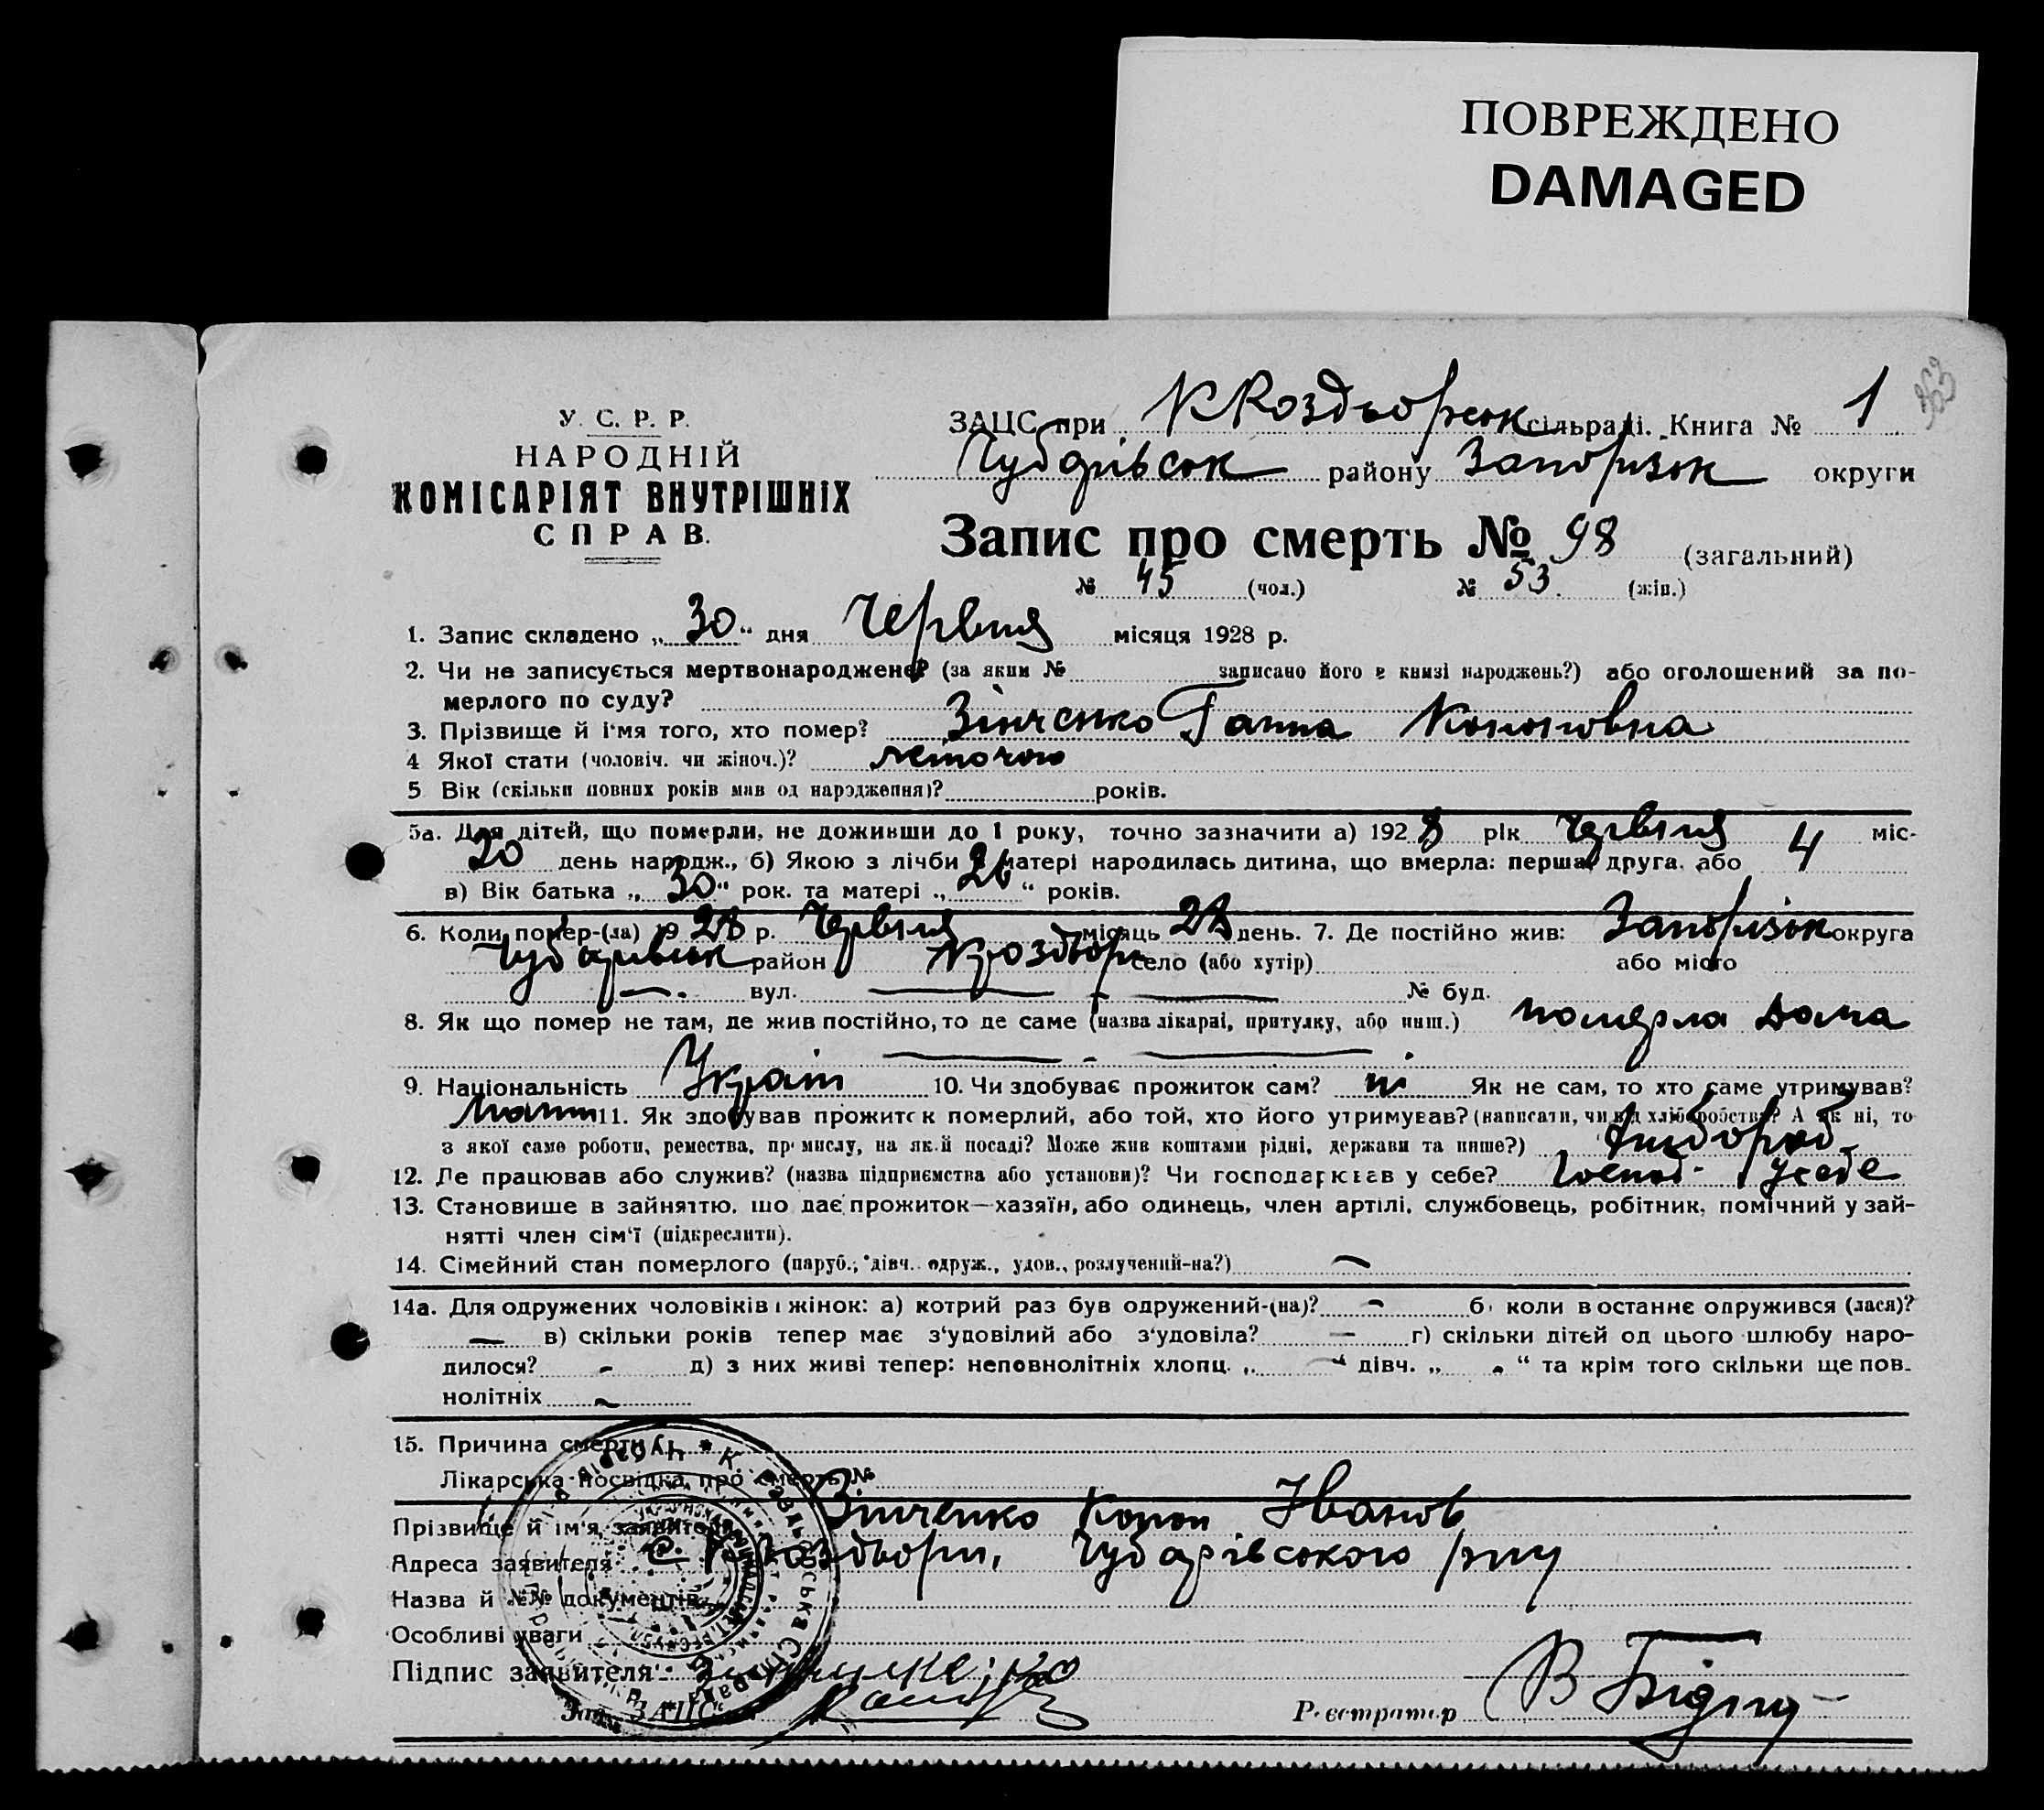 ПОВРЕЖДЕНО
DAMAGED
363
У. С. Р. Р.
НАРОДНІЙ
КОМІСАРІЯТ ВНУТРІШНІХ
СПРАВ.
ЗАЦС при К Роздьорськ сільраді. Книга № 1
Чубарівськ району Запорізьк округи
Запис про смерть № 98 (загальний)
№ 45 (чол.) № 53. (жін.)
1. Запис складено „30“ дня Червня місяця 1928 р.
2. Чи не записується мертвонароджене? (за яким № записано його в книзі народжень?) або оголошений за по-
мерлого по суду?
3. Прізвище й і'мя того, хто помер? Зінченко Ганна Кононовна
4 Якої стати (чоловіч. чи жіноч.)? жіночою
5 Вік (скільки повних років мав од народження)? років.
5а. Для дітей, що померли, не доживши до 1 року, точно зазначити а) 1928 рік Червня 4 міс-
20 день народж., б) Якою з лічби у матері народилась дитина, що вмерла: перша, друга, або 4
в) Вік батька „30“ рок. та матері „26“ років.
6. Коли помер-(ла) 1928 р. Червня місяць 28 день. 7. Де постійно жив: Запорізьк округа
Чубарівськ район Кроздьор село (або хутір) або місто
— вул. — - — № буд.
8. Як що помер не там, де жив постійно, то де саме (назва лікарні, притулку, або инш.) померла дома
— - —
9. Національність Україн 10. Чи здобуває прожиток сам? ні Як не сам, то хто саме утримував?
11. Як здобував прожиток померлий, або той, хто його утримував? (написати, чи від хліборобства? А як ні, то
з якої саме роботи, ремества, промислу, на якій посаді? Може жив коштами рідні, держави та инше?) хлібороб.
12. Де працював або служив? (назва підприємства або установи)? Чи господарював у себе? господ. у себе
13. Становище в зайняттю, що дає прожиток—хазяїн, або одинець, член артілі, службовець, робітник, помічний у зай-
нятті член сім'ї (підкреслити).
14. Сімейний стан померлого (паруб., дівч. одруж., удов., розлучений-на?) —
14а. Для одружених чоловіків і жінок: а) котрий раз був одружений-(на)? - б) коли востаннє одружився (лася)?
— в) скільки років тепер має з'удовілий або з'удовіла? — г) скільки дітей од цього шлюбу наро-
дилося? - д) з них живі тепер: неповнолітніх хлопц. „ - “ дівч. „ - “ та крім того скільки ще пов-
нолітніх -
15. Причина смерти
Лікарська посвідка про смерть №
Прізвище й ім'я заявителя Зінченко Конон Іванов
Адреса заявителя с. К Роздьори, Чубарівського р-ну
Назва й №№ документів
Особливі уваги
Підпис заявителя
Зав. ЗАЦС
Реєстратор В Бідну